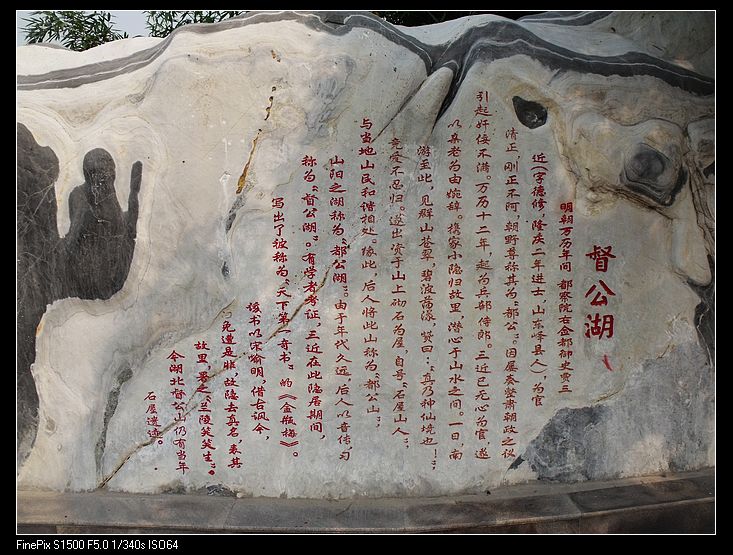 督公湖
明朝万历年间 都察院右佥都御史贾三
近（字德修，隆庆二年进士，山东峄县人），为官
清正，刚正不阿，朝野尊称其为“都公”。因屡奏整肃朝政之议
引起奸佞不满。万历十二年，起为兵部侍郎。三近已无心为官，遂
以亲老为由婉辞。携家小隐归故里，潜心于山水之间。一日，南
游至此，见群山苍翠，碧波荡漾，赞曰：“真乃神仙境也！”
竟爱不忍归。遂出资于山上砌石为屋，自号“石屋山人”，
与当地山民和谐相处。缘此，后人将此山称为“都公山”，
山阳之湖称为“都公湖”。由于年代久远，后人以音传习
称为“督公湖”。有学者考证，三近在此隐居期间，
写出了被称为“天下第一奇书”的《金瓶梅》。
该书以宋喻明，借古讽今，
免遭是非，故隐去真名，表其
故里，署之“兰陵笑笑生”。
今湖北督公山仍有当年
石屋遗迹。
FinePix S1500 F5.0 1/340s ISO64